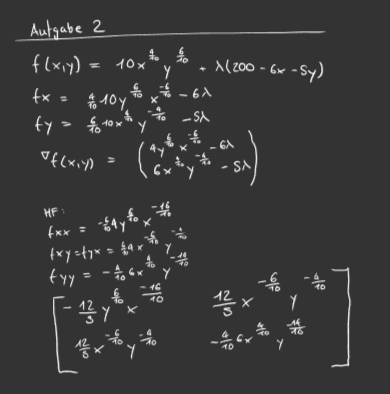 Aufgabe 2
f(x,y) = 10x^(4/10) y^(6/10) + λ(200 - 6x - 5y)
fx = 4/10 10y^(6/10) x^(-6/10) - 6λ
fy = 6/10 10x^(4/10) y^(-4/10) - 5λ
∇f(x,y) = (4y^(6/10) x^(-6/10) - 6λ
6x^(4/10) y^(-4/10) - 5λ)
HF:
fxx = -6/10 4y^(6/10) x^(-16/10)
fxy = fyx = 6/10 4x^(-6/10) y^(-4/10)
fyy = -4/10 6x^(4/10) y^(-14/10)
[-12/5 y^(6/10) x^(-16/10) 12/5 x^(-6/10) y^(-4/10)
12/5 x^(-6/10) y^(-4/10) -4/10 6x^(4/10) y^(-14/10)]